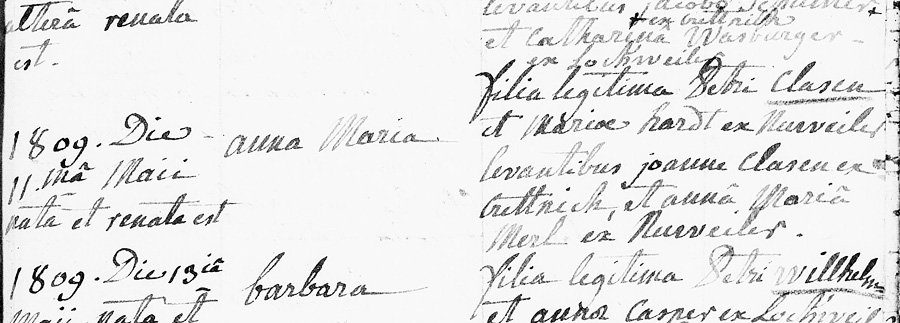 alterâ renata
est.
levantibus jacobo
ex crettnich
et Catharinâ Wasburger
ex Lochweiler
1809. Die
11.mâ Maii
nata et renata est
anna Maria
filia legitima Petri Clasen
et Mariæ hardt ex Nurveiler
levantibus joanne Clasen ex
Crettnich, et annâ Mariâ
Merl ex Nurveiler.
1809. Die 13iâ
Maii nata et
barbara
filia legitima Petri Willhelm
et annæ Casper ex Lochweil